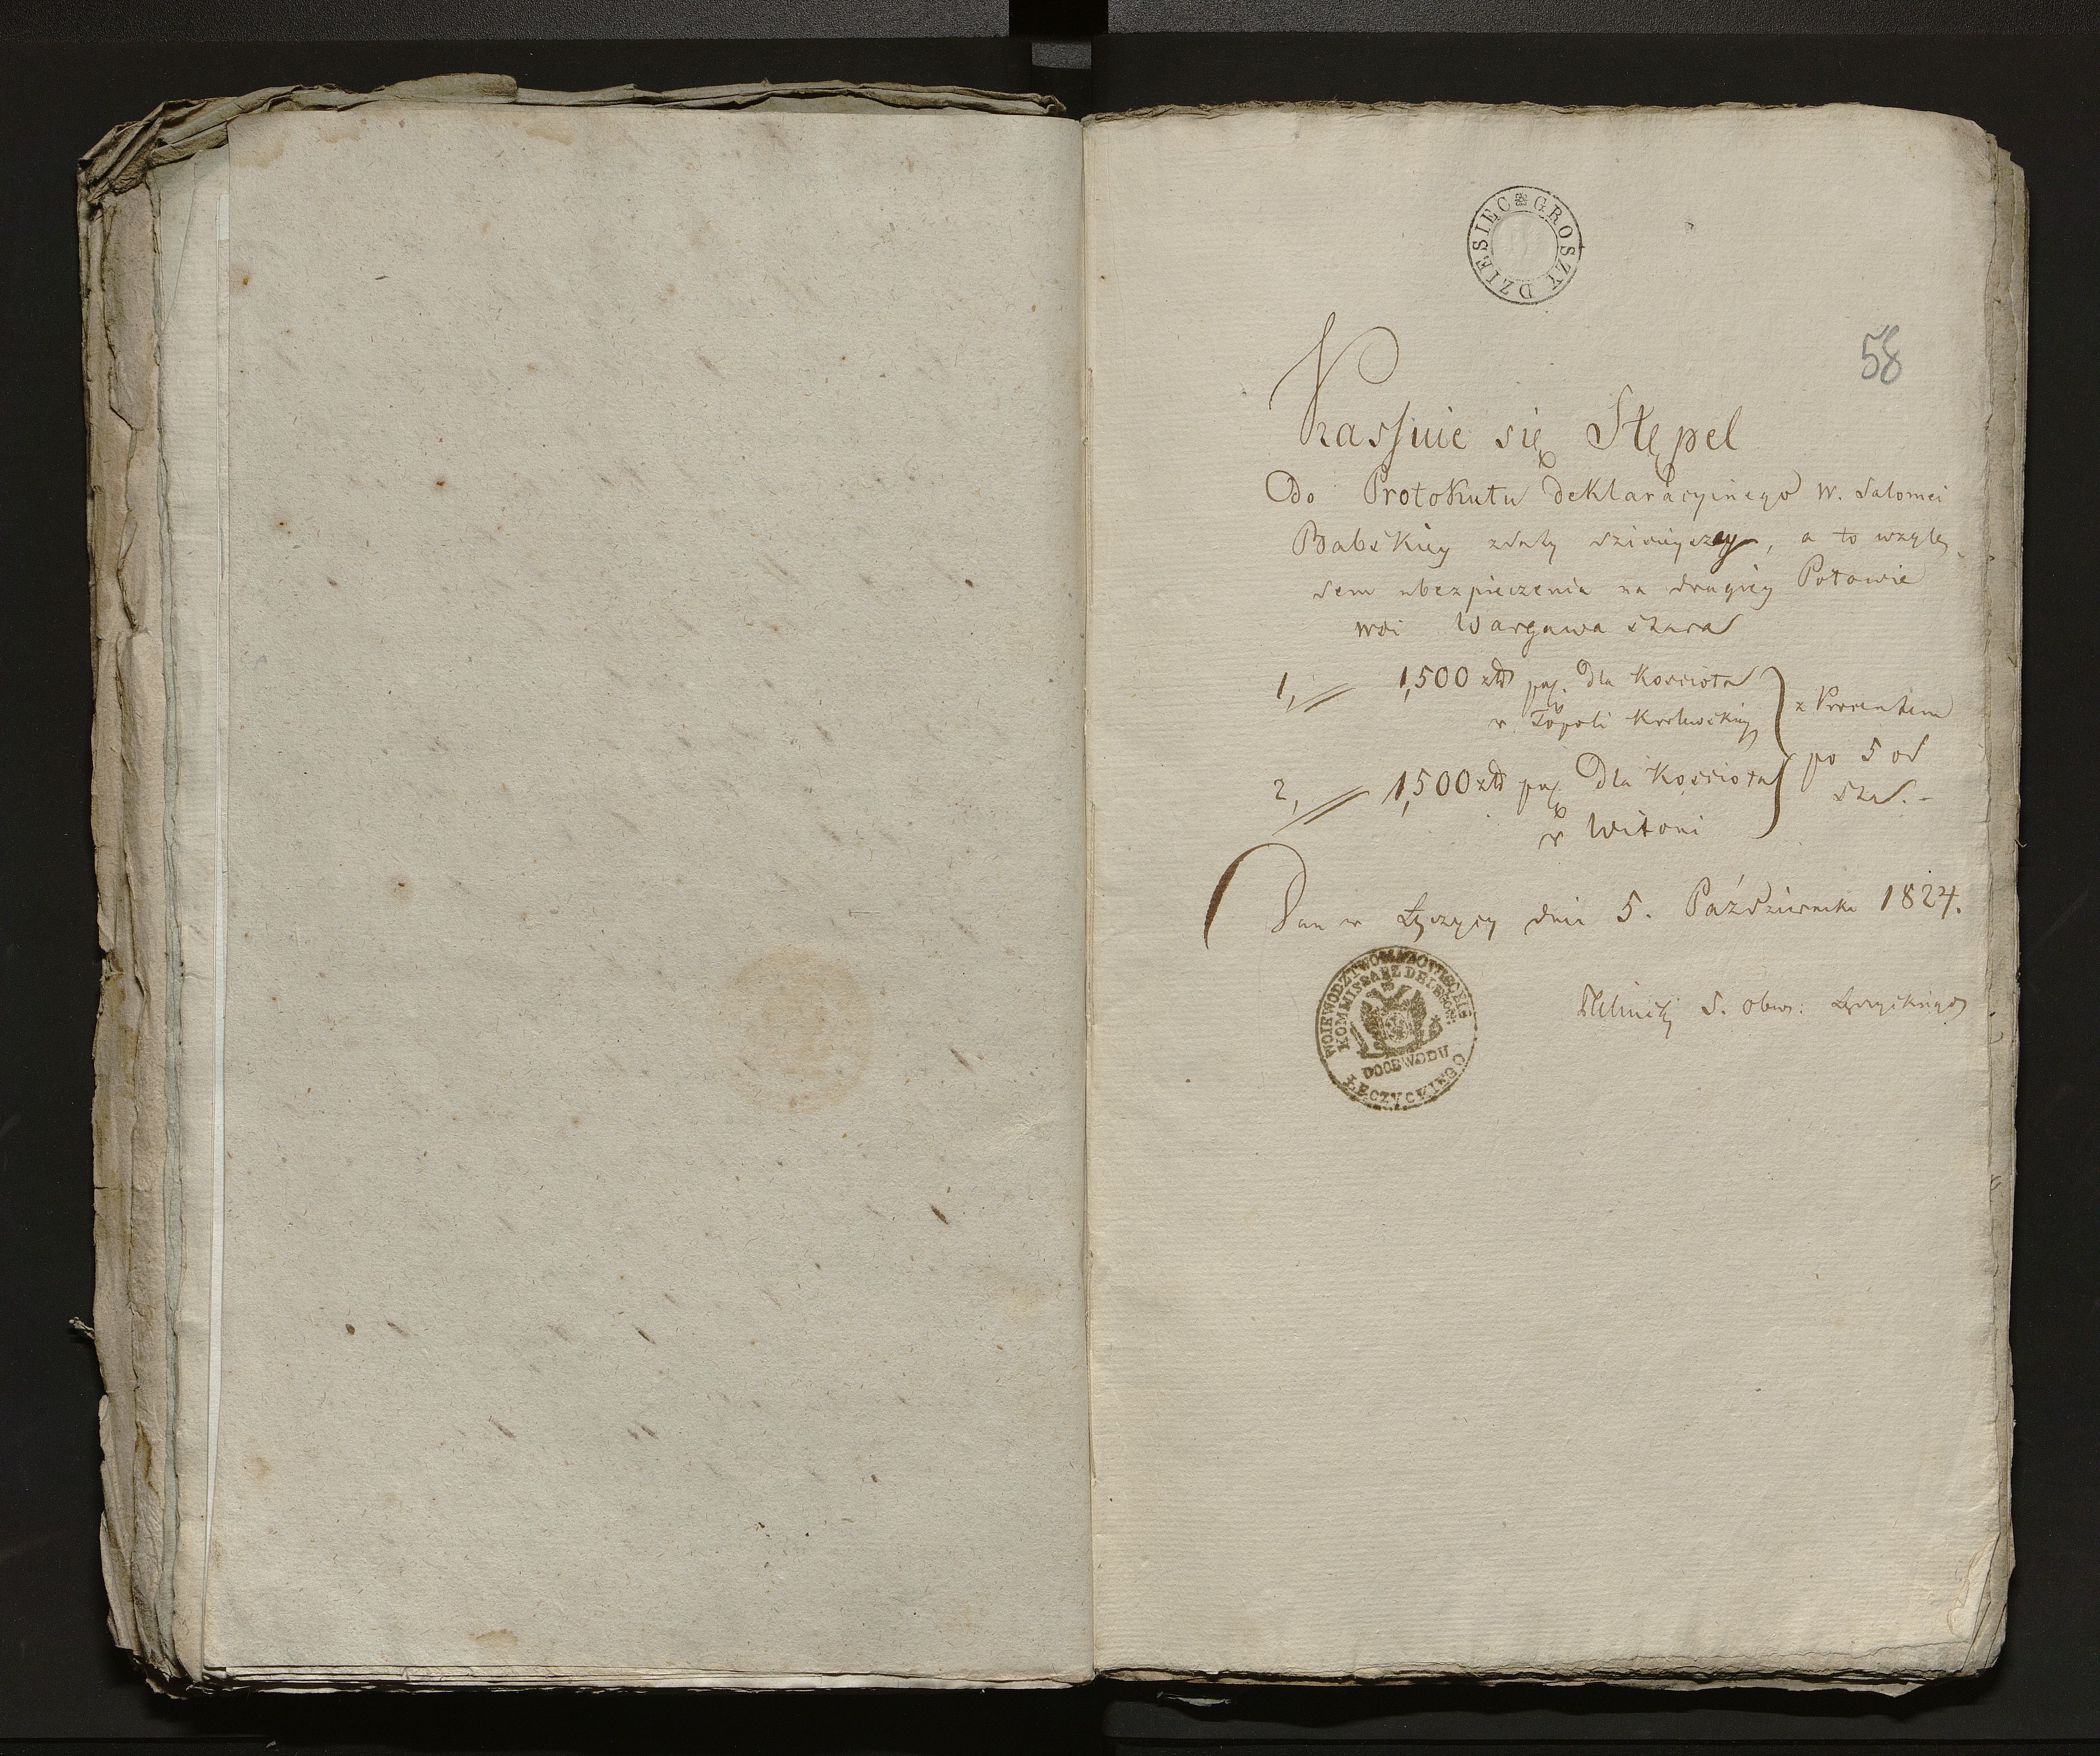 GROSZY DZIESIEC
58
Kassuie się Stępel
Do Protokułu deklaracyinego W. Salomei
Babskiey z daty dzisieyszey, a to wzglę-
dem ubezpieczenia na drugiey Połowie
wsi Wargawa stara
1, 1,500 złł pol. dla Kościoła
w Topoli Krolewskiey
z Procentem
po 5 od
sta. -
2, 1,500 złł pol. Dla Kościoła
w Witoni
Dan w Łęczycy dnia 5. Października 1824.
WOIEWODZTWO MAZOWIECKIE
KOMMISSARZ DELEGOW:
DO OBWODU
ŁĘCZYCKIEGO
D. Obwo: Łęczyckiego